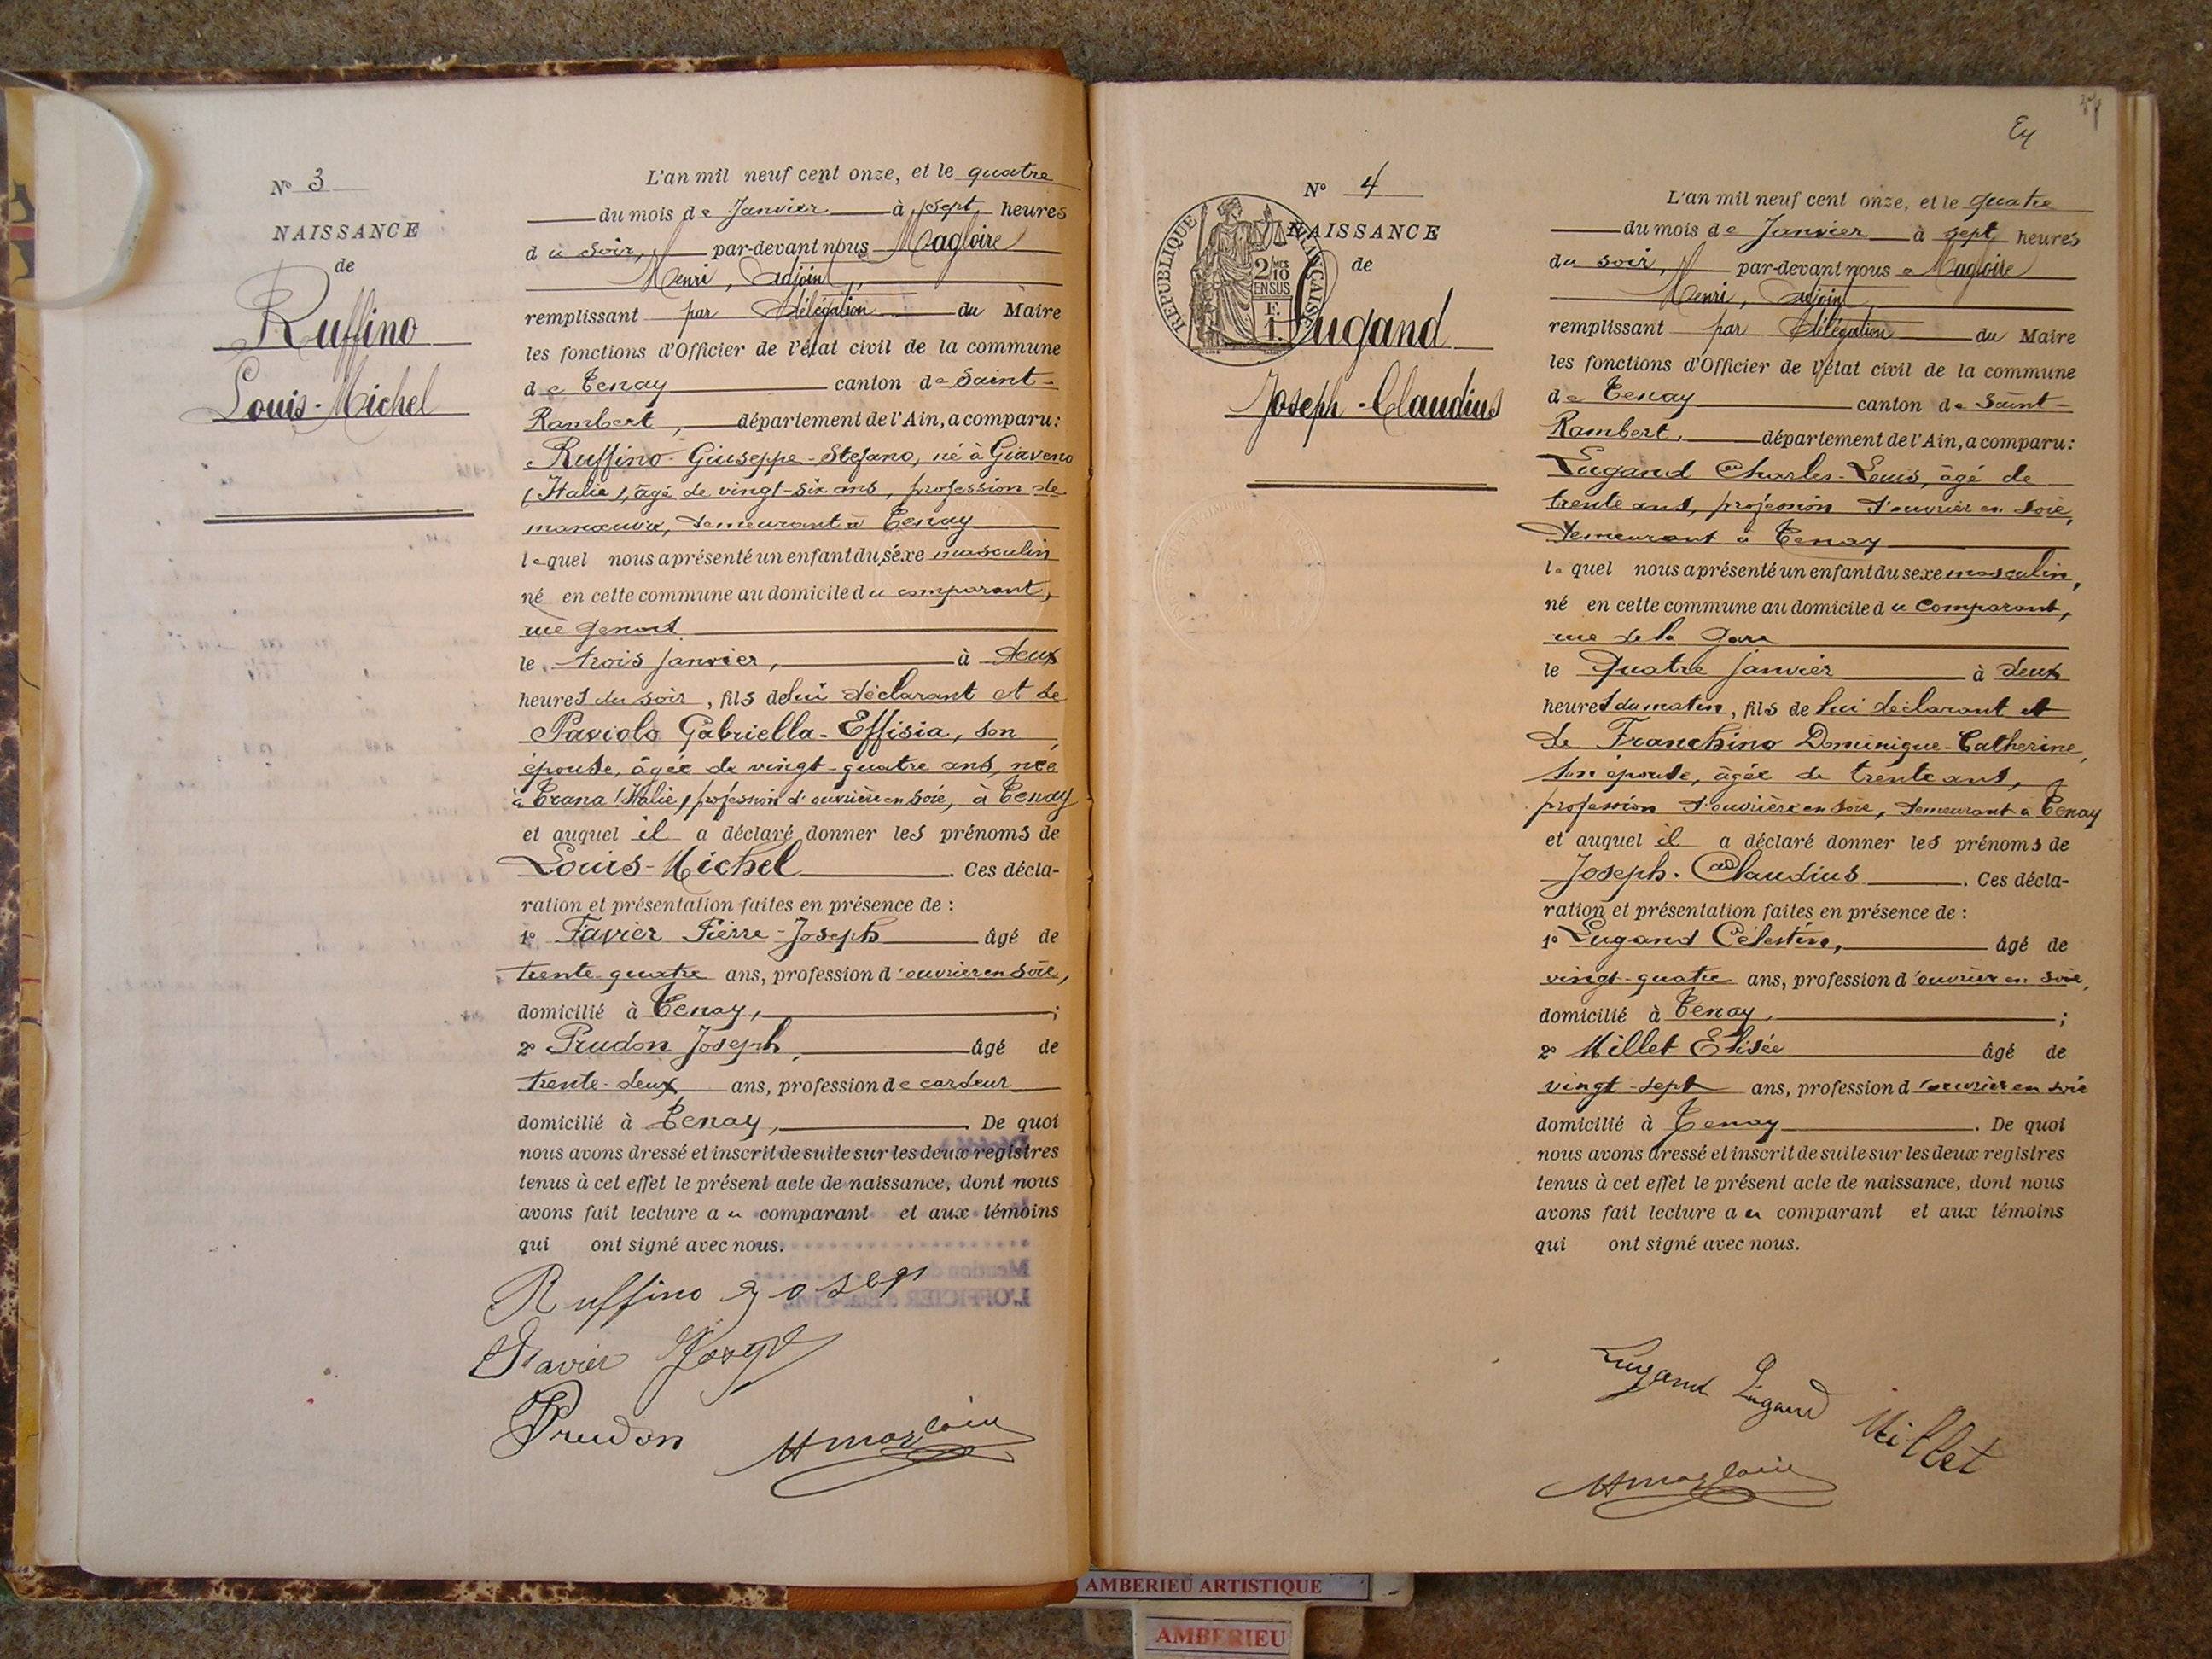 N° 3
NAISSANCE
de
Ruffino
Louis-Michel
L'an mil neuf cent onze, et le quatre
du mois de Janvier à sept heures
du soir, par-devant nous Magloire
Henri, adjoint,
remplissant par délégation du Maire
les fonctions d'Officier de l'état civil de la commune
de Tenay canton de Saint-
Rambert, département de l'Ain, a comparu:
Ruffino Giuseppe-Stefano, né à Giaveno
(Italie), âgé de vingt-six ans, profession de
manoeuvre, demeurant à Tenay
lequel nous a présenté un enfant du sexe masculin
né en cette commune au domicile du comparant,
rue
le trois janvier, à deux
heures du soir, fils de lui déclarant et de
Paviolo Gabriella-Effisia, son
épouse, âgée de vingt-quatre ans, née
à Trana (Italie), profession d'ouvrière en soie, à Tenay
et auquel il a déclaré donner les prénoms de
Louis-Michel. Ces décla-
ration et présentation faites en présence de :
1° Favier Pierre-Joseph âgé de
trente-quatre ans, profession d'ouvrier en soie,
domicilié à Tenay, ;
2° Prudon Joseph, âgé de
trente-deux ans, profession de cardeur
domicilié à Tenay, De quoi
nous avons dressé et inscrit de suite sur les deux registres
tenus à cet effet le présent acte de naissance, dont nous
avons fait lecture au comparant et aux témoins
qui ont signé avec nous.
Ruffino
Favier Joseph
Prudon
HMagloire
N° 4
NAISSANCE
de
REPUBLIQUE FRANÇAISE
2/10 EN SUS
1 F.
Lugand
Joseph-Claudius
L'an mil neuf cent onze, et le quatre
du mois de Janvier à sept heures
du soir, par-devant nous Magloire
Henri, adjoint,
remplissant par délégation du Maire
les fonctions d'Officier de l'état civil de la commune
de Tenay canton de Saint-
Rambert, département de l'Ain, a comparu:
Lugand Charles-Louis, âgé de
trente ans, profession d'ouvrier en soie,
demeurant à Tenay
lequel nous a présenté un enfant du sexe masculin,
né en cette commune au domicile du comparant,
rue de la Gare
le Quatre janvier à deux
heures du matin, fils de lui déclarant et
de Franchino Dominique-Catherine,
son épouse, âgée de trente ans,
profession d'ouvrière en soie, demeurant à Tenay
et auquel il a déclaré donner les prénoms de
Joseph-Claudius. Ces décla-
ration et présentation faites en présence de :
1° Lugand Célestin, âgé de
vingt-quatre ans, profession d'ouvrier en soie,
domicilié à Tenay, ;
2° Millet Elisée âgé de
vingt-sept ans, profession d'ouvrier en soie
domicilié à Tenay. De quoi
nous avons dressé et inscrit de suite sur les deux registres
tenus à cet effet le présent acte de naissance, dont nous
avons fait lecture au comparant et aux témoins
qui ont signé avec nous.
Lugand Lugand Millet
HMagloire
AMBERIEU ARTISTIQUE
AMBERIEU